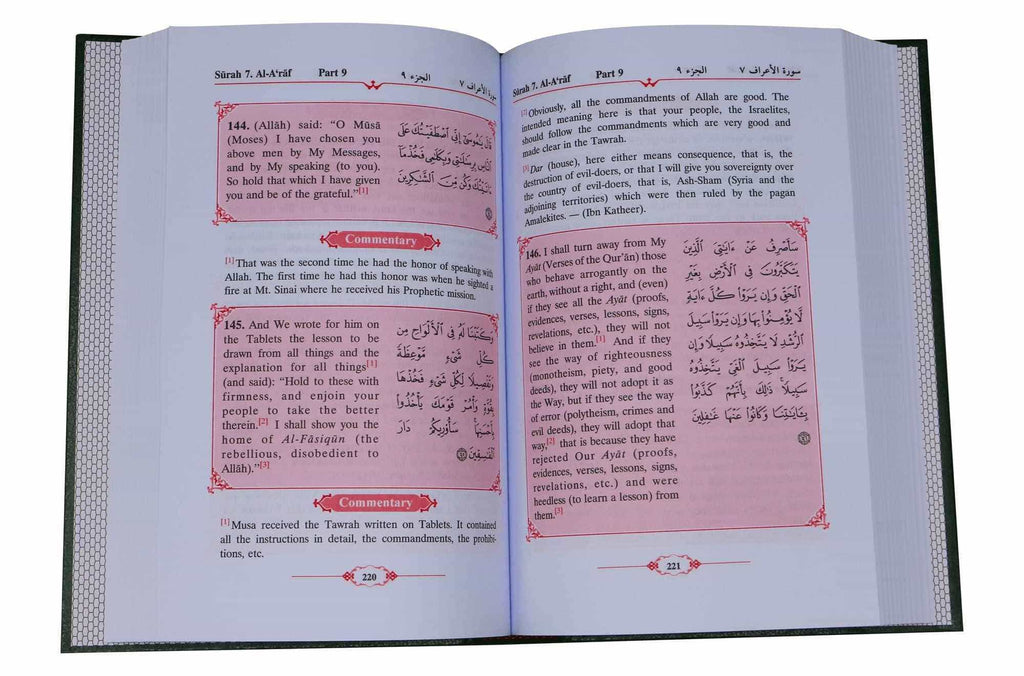 Sūrah 7. Al-A'rāf Part 9 الجزء ٩ سورة الأعراف ٧
144. (Allāh) said: "O Mūsā
(Moses) I have chosen you
above men by My Messages,
and by My speaking (to you).
So hold that which I have given
you and be of the grateful."[1]
قَالَ يَٰمُوسَىٰٓ إِنِّي ٱصۡطَفَيۡتُكَ عَلَى
ٱلنَّاسِ بِرِسَٰلَٰتِي وَبِكَلَٰمِي فَخُذۡ مَآ
ءَاتَيۡتُكَ وَكُن مِّنَ ٱلشَّٰكِرِينَ
١٤٤
Commentary
[1] That was the second time he had the honor of speaking with
Allah. The first time he had this honor was when he sighted a
fire at Mt. Sinai where he received his Prophetic mission.
145. And We wrote for him on
the Tablets the lesson to be
drawn from all things and the
explanation for all things[1]
(and said): "Hold to these with
firmness, and enjoin your
people to take the better
therein.[2] I shall show you the
home of Al-Fāsiqūn (the
rebellious, disobedient to
Allāh)."[3]
وَكَتَبۡنَا لَهُۥ فِي ٱلۡأَلۡوَاحِ مِن
كُلِّ شَيۡءٖ مَّوۡعِظَةٗ
وَتَفۡصِيلٗا لِّكُلِّ شَيۡءٖ فَخُذۡهَا
بِقُوَّةٖ وَأۡمُرۡ قَوۡمَكَ يَأۡخُذُواْ
بِأَحۡسَنِهَاۚ سَأُوْرِيكُمۡ دَارَ
ٱلۡفَٰسِقِينَ ١٤٥
Commentary
[1] Musa received the Tawrah written on Tablets. It contained
all the instructions in detail, the commandments, the prohibi-
tions, etc.
220
Sūrah 7. Al-A'rāf Part 9 الجزء ٩ سورة الأعراف ٧
[2] Obviously, all the commandments of Allah are good. The
intended meaning here is that your people, the Israelites,
should follow the commandments which are very good and
made clear in the Tawrah.
[3] Dar (house), here either means consequence, that is, the
destruction of evil-doers, or that I will give you sovereignty over
the country of evil-doers, that is, Ash-Sham (Syria and the
adjoining territories) which were then ruled by the pagan
Amalekites. — (Ibn Katheer).
146. I shall turn away from My
Ayāt (Verses of the Qur'ān) those
who behave arrogantly on the
earth, without a right, and (even)
if they see all the Ayāt (proofs,
evidences, verses, lessons, signs,
revelations, etc.), they will not
believe in them.[1] And if they
see the way of righteousness
(monotheism, piety, and good
deeds), they will not adopt it as
the Way, but if they see the way
of error (polytheism, crimes and
evil deeds), they will adopt that
way,[2] that is because they have
rejected Our Ayāt (proofs,
evidences, verses, lessons, signs,
revelations, etc.) and were
heedless (to learn a lesson) from
them.[3]
سَأَصۡرِفُ عَنۡ ءَايَٰتِيَ ٱلَّذِينَ
يَتَكَبَّرُونَ فِي ٱلۡأَرۡضِ بِغَيۡرِ
ٱلۡحَقِّ وَإِن يَرَوۡاْ كُلَّ ءَايَةٖ
لَّا يُؤۡمِنُواْ بِهَا وَإِن يَرَوۡاْ سَبِيلَ
ٱلرُّشۡدِ لَا يَتَّخِذُوهُ سَبِيلٗا وَإِن
يَرَوۡاْ سَبِيلَ ٱلۡغَيِّ يَتَّخِذُوهُ
سَبِيلٗاۚ ذَٰلِكَ بِأَنَّهُمۡ كَذَّبُواْ
بِـَٔايَٰتِنَا وَكَانُواْ عَنۡهَا غَٰفِلِينَ
١٤٦
221